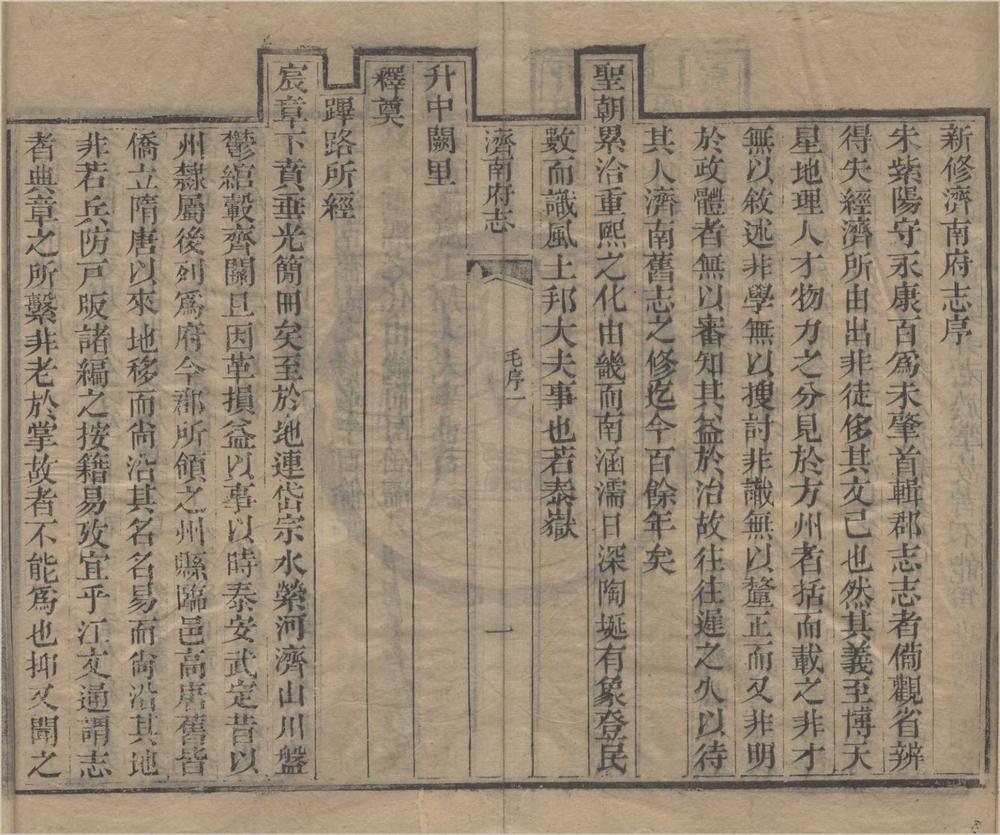 新修濟南府志序
朱紫陽守永康百爲未肇首輯郡志志者備觀省辨
得失經濟所由出非徒侈其文已也然其義至博天
星地理人才物力之分見於方州者括而載之非才
無以敘述非學無以搜討非識無以釐正而又非明
於政體者無以審知其益於治故往往遲之久以待
其人濟南舊志之修迄今百餘年矣
聖朝累治重熙之化由畿而南涵濡日深陶埏有象登民
數而識風土邦大夫事也若泰嶽
濟南府志
毛序一
一
升中闕里
釋奠
蹕路所經
宸章下賁垂光簡冊矣至於地連岱宗水縈河濟山川盤
鬱綰轂齊關且因革損益以事以時泰安武定昔以
州隸屬後列爲府今郡所領之州縣臨邑高唐舊皆
僑立隋唐以來地移而尙沿其名名易而尙沿其地
非若兵防戸版諸編之按籍易攷宜乎江文通謂志
者典章之所繫非老於掌故者不能爲也抑又聞之